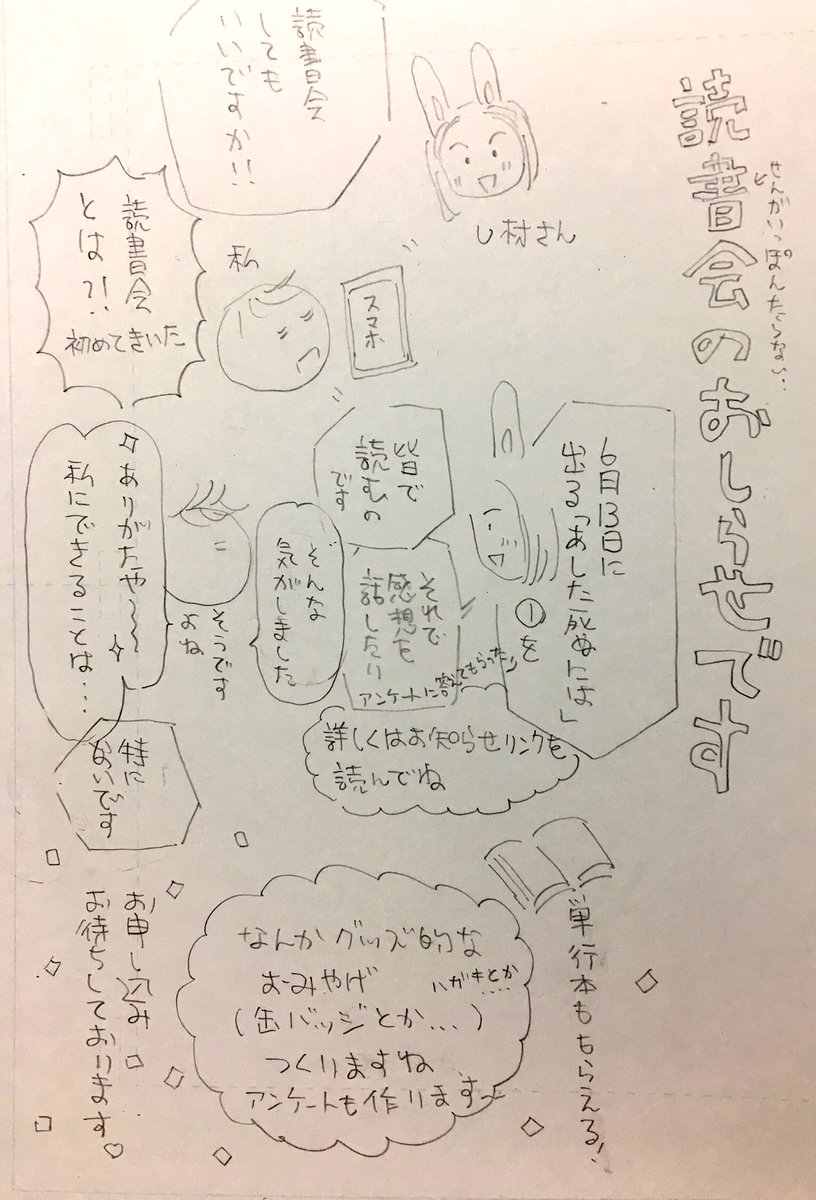 読書会のおしらせです
せんがいっぽんたらない…
し村さん
読書会
しても
いいですか!!
スマホ
私
読書会
とは?!
初めてきいた
6月13日に
出る「あした死ぬには」
①を
皆で
読むの
です
それで
感想を
話したり
アンケートに答えてもらったり
そんな
気がしました
そうです
よね
ありがたや〜〜
私にできることは…
特に
ないです
詳しくはお知らせリンクを
読んでね
単行本ももらえる!
なんかグッズ的な
おみやげ
ハガキとか…
(缶バッジとか…)
つくりますね
アンケートも作ります〜
お申し込み
お待ちしております♡